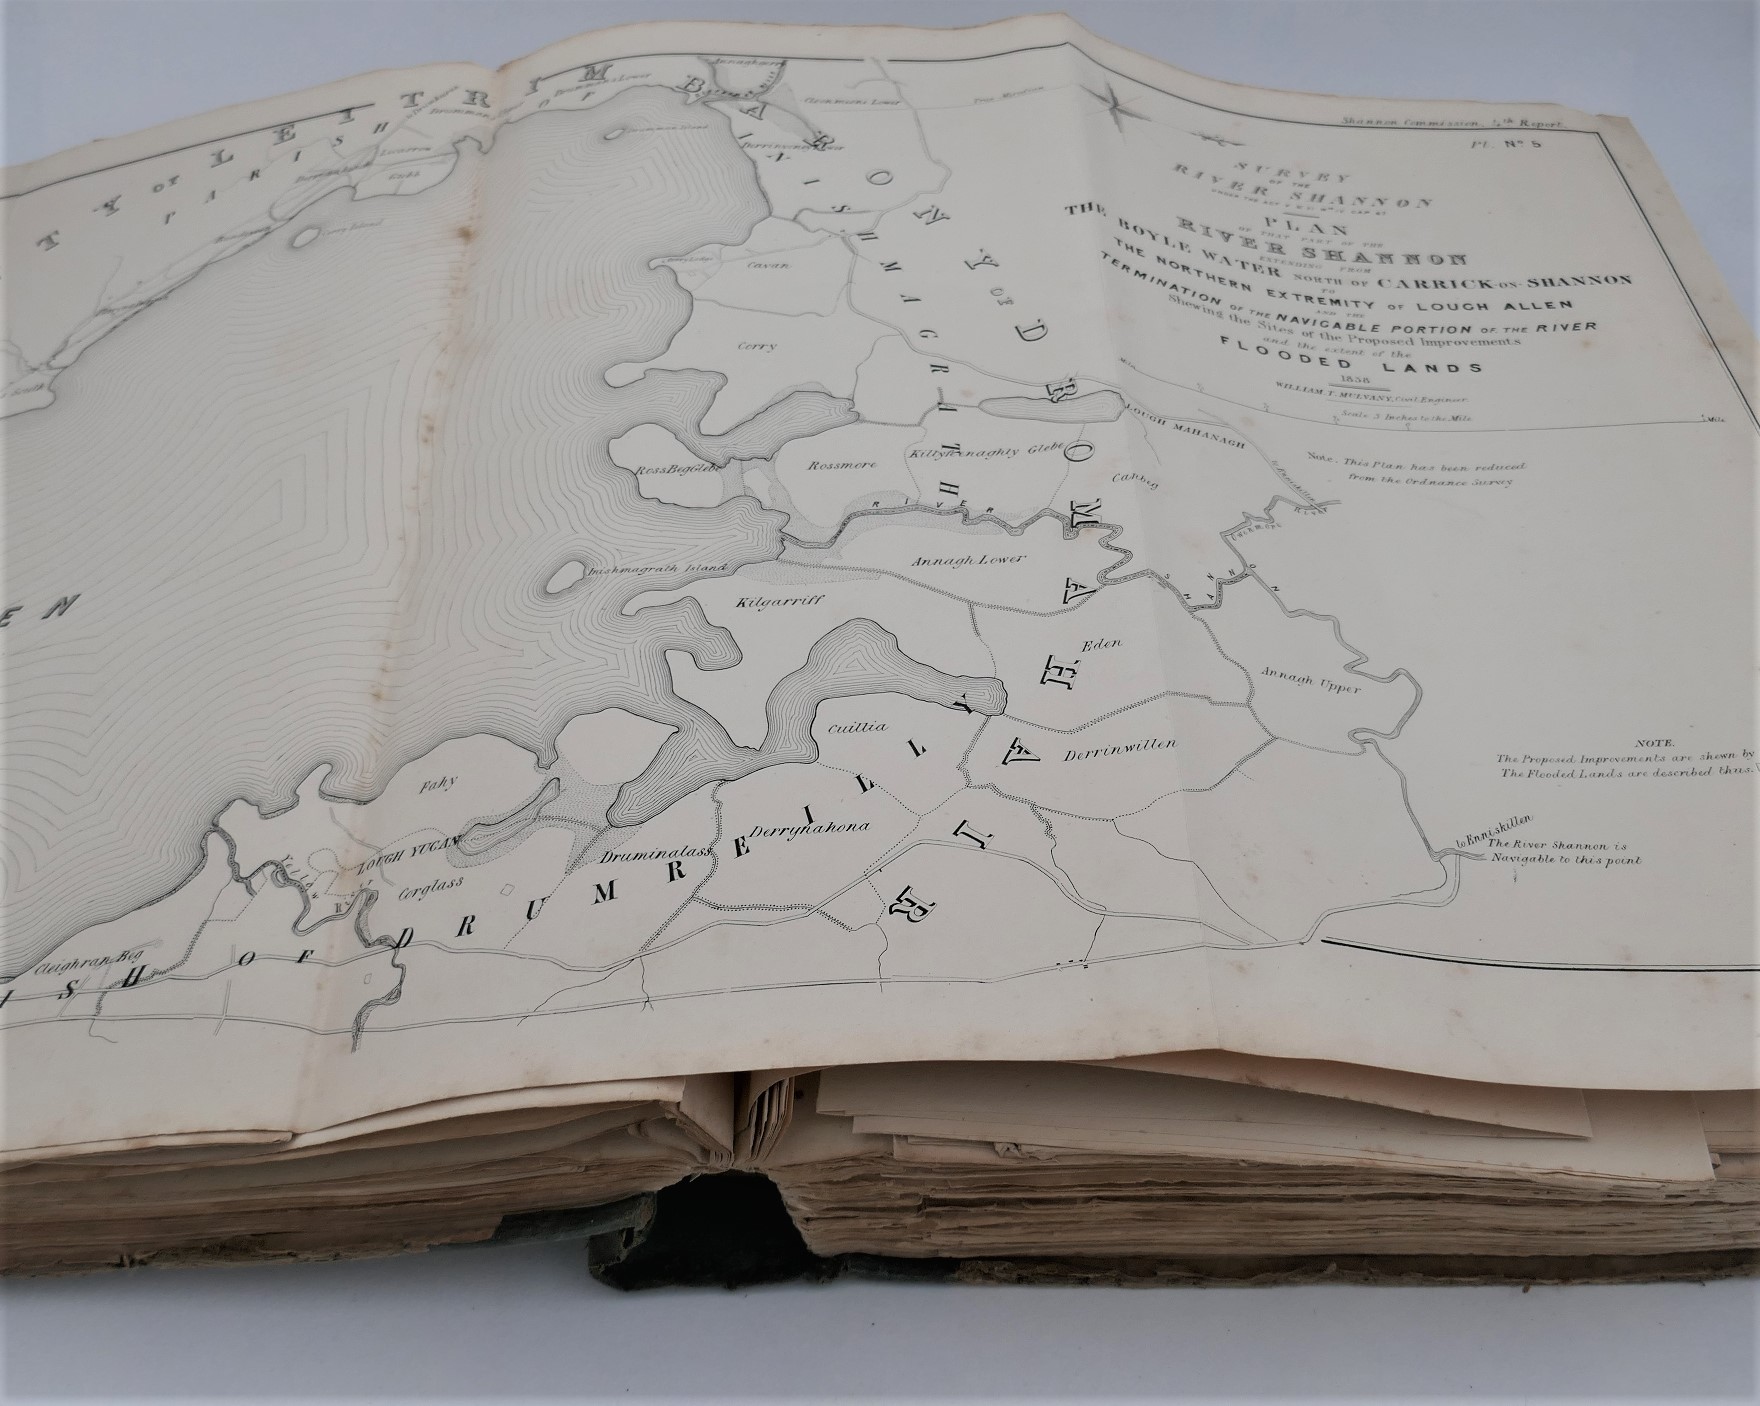 Shannon Commission, Report
Pl. No. 5
SURVEY
OF THE
RIVER SHANNON
PLAN
OF THAT PART OF THE
RIVER SHANNON
EXTENDING FROM
THE BOYLE WATER NORTH OF CARRICK-ON-SHANNON
TO
THE NORTHERN EXTREMITY OF LOUGH ALLEN
AND THE
TERMINATION OF THE NAVIGABLE PORTION OF THE RIVER
Shewing the Sites of the Proposed Improvements
and the extent of the
FLOODED LANDS
1838
WILLIAM T. MULVANY, Civil Engineer
Scale 3 Inches to the Mile
Mile
1 Mile
Note. This Plan has been reduced
from the Ordnance Survey
NOTE.
The Proposed Improvements are shewn by
The Flooded Lands are described thus.
to Enniskillen
The River Shannon is
Navigable to this point
TY OF LEITRIM
PARISH
BARONY OF DROMAHEAIR
INISHMAGRITH
ISH OF DRUMREILLY
EN
Cavan
Corry
RossBegGlebe
Rossmore
Glebe
LOUGH MAHANAGH
RIVER
SHANNON
Inishmagrath Island
Annagh Lower
Kilgarriff
Eden
Annagh Upper
Cuillia
Derrinwillen
Fahy
LOUGH YUGAN
Derrynahona
Druminalass
Corglass
Cleighran Beg